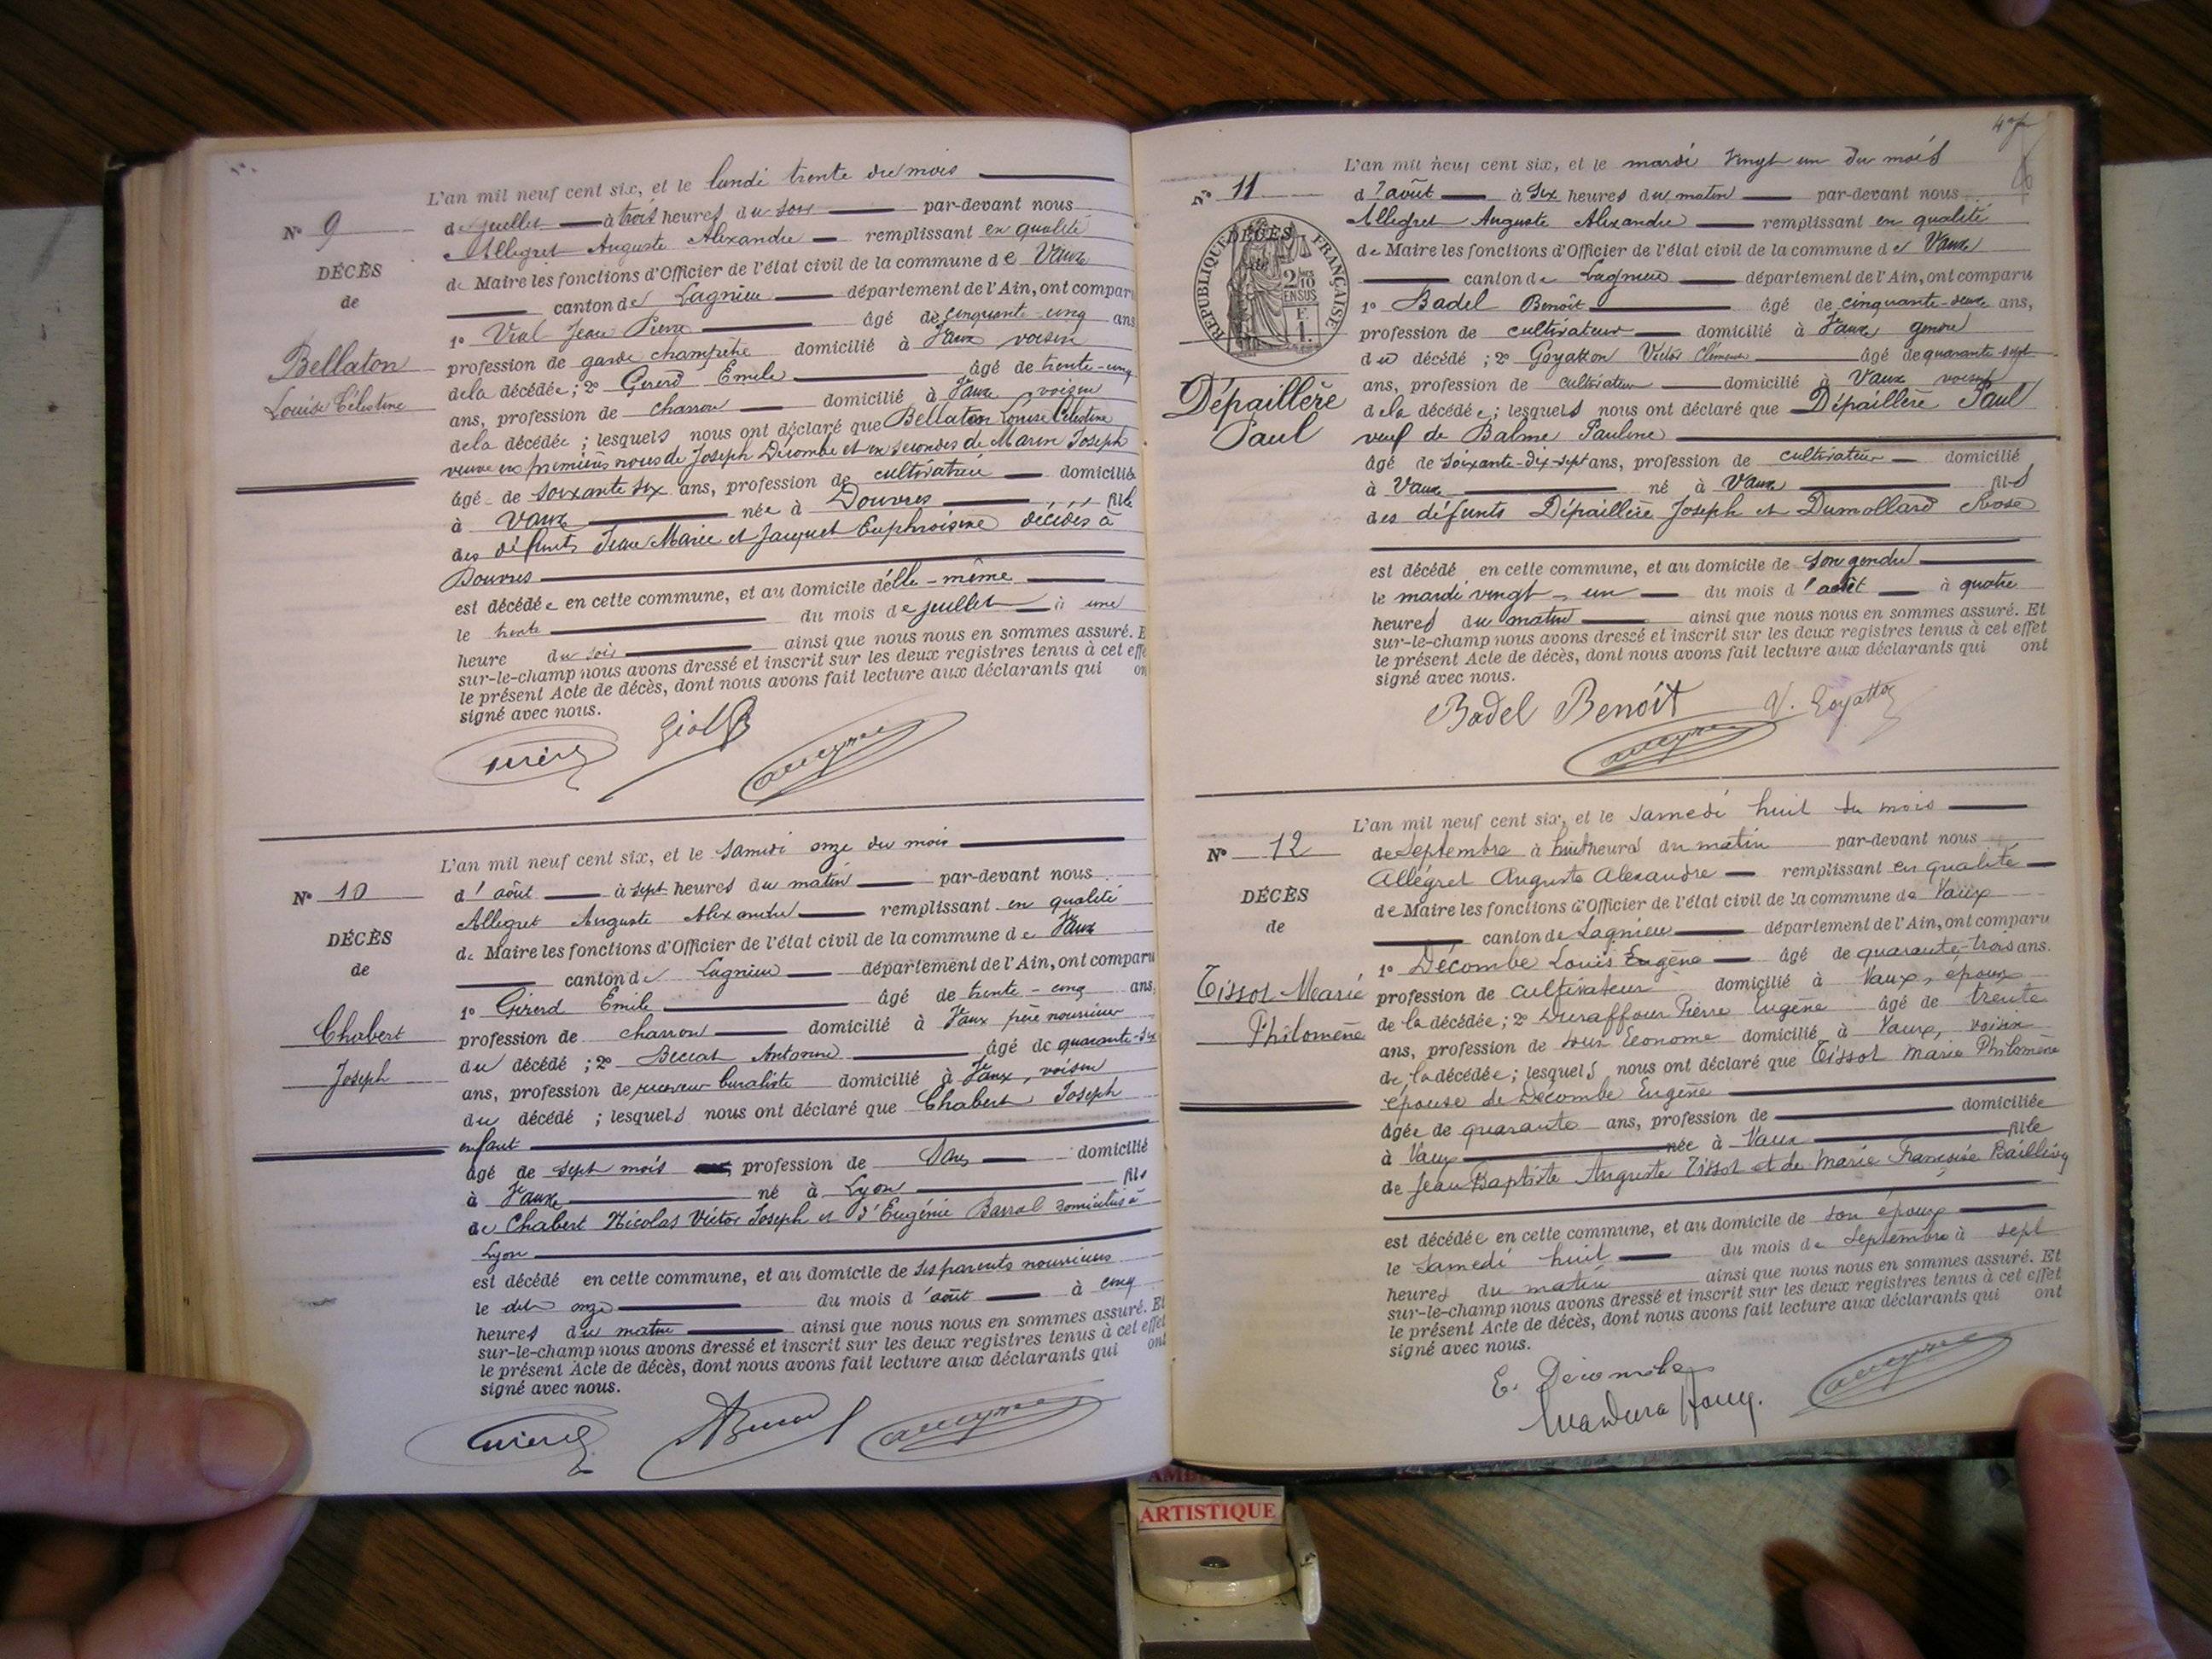 L'an mil neuf cent six, et le lundi trente du mois
de juillet à trois heures du soir par-devant nous
Allegret Auguste Alexandre remplissant en qualité
de Maire les fonctions d'Officier de l'état civil de la commune de Vaux
canton de Lagnieu département de l'Ain, ont comparu
1º Vial Jean Pierre âgé de cinquante-cinq ans
profession de garde champêtre domicilié à Vaux voisin
de la décédée; 2º Gererd Emile âgé de trente-cinq
ans, profession de charron domicilié à Vaux, voisin
de la décédée; lesquels nous ont déclaré que Bellaton Louise Célestine
veuve en premières noces de Joseph Décombe et en secondes de Marin Joseph
âgé de soixante six ans, profession de cultivatrice domiciliée
à Vaux née à Douvres fille
des défunts Jean Marie et Jacquet Euphroisine décédés à
Douvres
est décédée en cette commune, et au domicile d'elle-même
le trente du mois de juillet à une
heure du soir ainsi que nous nous en sommes assuré. E
sur-le-champ nous avons dressé et inscrit sur les deux registres tenus à cet effe
le présent Acte de décès, dont nous avons fait lecture aux déclarants qui on
signé avec nous.
Nº 9
DÉCÈS
de
Bellaton
Louise Célestine
L'an mil neuf cent six, et le samedi onze du mois
d'août à sept heures du matin par-devant nous
Allegret Auguste Alexandre remplissant en qualité
de Maire les fonctions d'Officier de l'état civil de la commune de Vaux
canton de Lagnieu département de l'Ain, ont comparu
1º Gererd Emile âgé de trente-cinq ans,
profession de charron domicilié à Vaux père nourricier
du décédé; 2º Beccat Antoine âgé de quarante-six
ans, profession de receveur buraliste domicilié à Vaux, voisin
du décédé; lesquels nous ont déclaré que Chabert Joseph
enfant
âgé de sept mois profession de Sans domicilié
à Vaux né à Lyon fils
de Chabert Nicolas Victor Joseph et d'Eugénie Barral domiciliés à
Lyon
est décédé en cette commune, et au domicile de ses parents nourriciers
le dit onze du mois d'août à cinq
heures du matin ainsi que nous nous en sommes assuré. Et
sur-le-champ nous avons dressé et inscrit sur les deux registres tenus à cet effet
le présent Acte de décès, dont nous avons fait lecture aux déclarants qui ont
signé avec nous.
Nº 10
DÉCÈS
de
Chabert
Joseph
L'an mil neuf cent six, et le mardi vingt un du mois
d'août à six heures du matin par-devant nous
Allegret Auguste Alexandre remplissant en qualité
de Maire les fonctions d'Officier de l'état civil de la commune de Vaux
canton de Lagnieu département de l'Ain, ont comparu
1º Badel Benoît âgé de cinquante-deux ans,
profession de cultivateur domicilié à Vaux gendre
du décédé; 2º Goyatton Victor Clément âgé de quarante-sept
ans, profession de cultivateur domicilié à Vaux voisin
de la décédée; lesquels nous ont déclaré que Dépaillère Paul
veuf de Balme Pauline
âgé de soixante-dix-sept ans, profession de cultivateur domicilié
à Vaux né à Vaux fils
des défunts Dépaillère Joseph et Dumollard Rose
est décédé en cette commune, et au domicile de son gendre
le mardi vingt-un du mois d'août à quatre
heures du matin ainsi que nous nous en sommes assuré. Et
sur-le-champ nous avons dressé et inscrit sur les deux registres tenus à cet effet
le présent Acte de décès, dont nous avons fait lecture aux déclarants qui ont
signé avec nous.
Badel Benoît V. Goyatton
Nº 11
RÉPUBLIQUE FRANÇAISE
DÉCÈS
2/10 EN SUS
F.
1.
Dépaillère
Paul
L'an mil neuf cent six, et le samedi huit du mois
de Septembre à huit heures du matin par-devant nous
Allégret Auguste Alexandre remplissant en qualité
de Maire les fonctions d'Officier de l'état civil de la commune de Vaux
canton de Lagnieu département de l'Ain, ont comparu
1º Décombe Louis Eugène âgé de quarante-trois ans.
profession de cultivateur domicilié à Vaux, époux
de la décédée; 2º Duraffour Pierre Eugène âgé de trente
ans, profession de sous Econome domicilié à Vaux, voisin
de la décédée; lesquels nous ont déclaré que Tissot Marie Philomène
épouse de Décombe Eugène
âgée de quarante ans, profession de domiciliée
à Vaux née à Vaux fille
de Jean Baptiste Auguste Tissot et de Marie Françoise
est décédée en cette commune, et au domicile de son époux
le samedi huit du mois de Septembre à sept
heures du matin ainsi que nous nous en sommes assuré. Et
sur-le-champ nous avons dressé et inscrit sur les deux registres tenus à cet effet
le présent Acte de décès, dont nous avons fait lecture aux déclarants qui ont
signé avec nous.
E. Décombe
Nº 12
DÉCÈS
de
Tissot Marie
Philomène
ARTISTIQUE